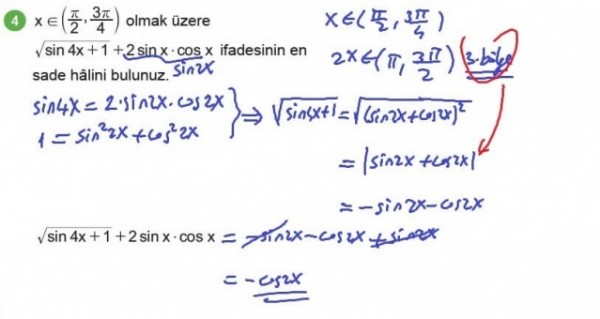 4 x ∈ (π/2, 3π/4) olmak üzere
√(sin 4x + 1) + 2 sin x · cos x ifadesinin en
sin2x
sade hâlini bulunuz.
x ∈ (π/2, 3π/4)
2x ∈ (π, 3π/2) 3. bölge
sin4x = 2·sin2x·cos2x
1 = sin²2x + cos²2x
⇒ √(sin4x+1) = √((sin2x+cos2x)²)
= |sin2x + cos2x|
= -sin2x - cos2x
√(sin 4x + 1) + 2 sin x · cos x = -sin2x - cos2x + sin2x
= -cos2x